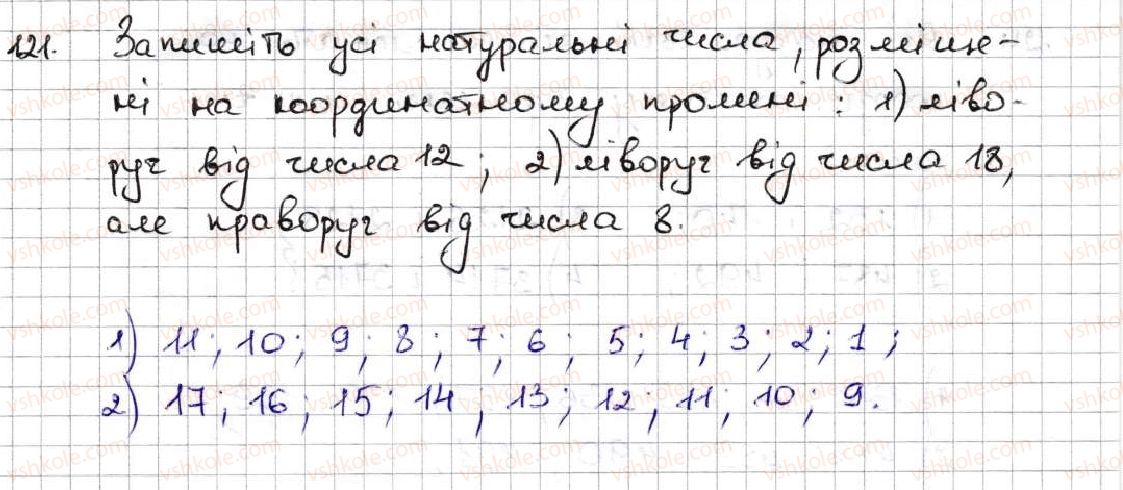 121. Запишіть усі натуральні числа, розміще-
ні на координатному промені: 1) ліво-
руч від числа 12; 2) ліворуч від числа 18,
але праворуч від числа 8.
1) 11; 10; 9; 8; 7; 6; 5; 4; 3; 2; 1;
2) 17; 16; 15; 14; 13; 12; 11; 10; 9.
vshkole.com